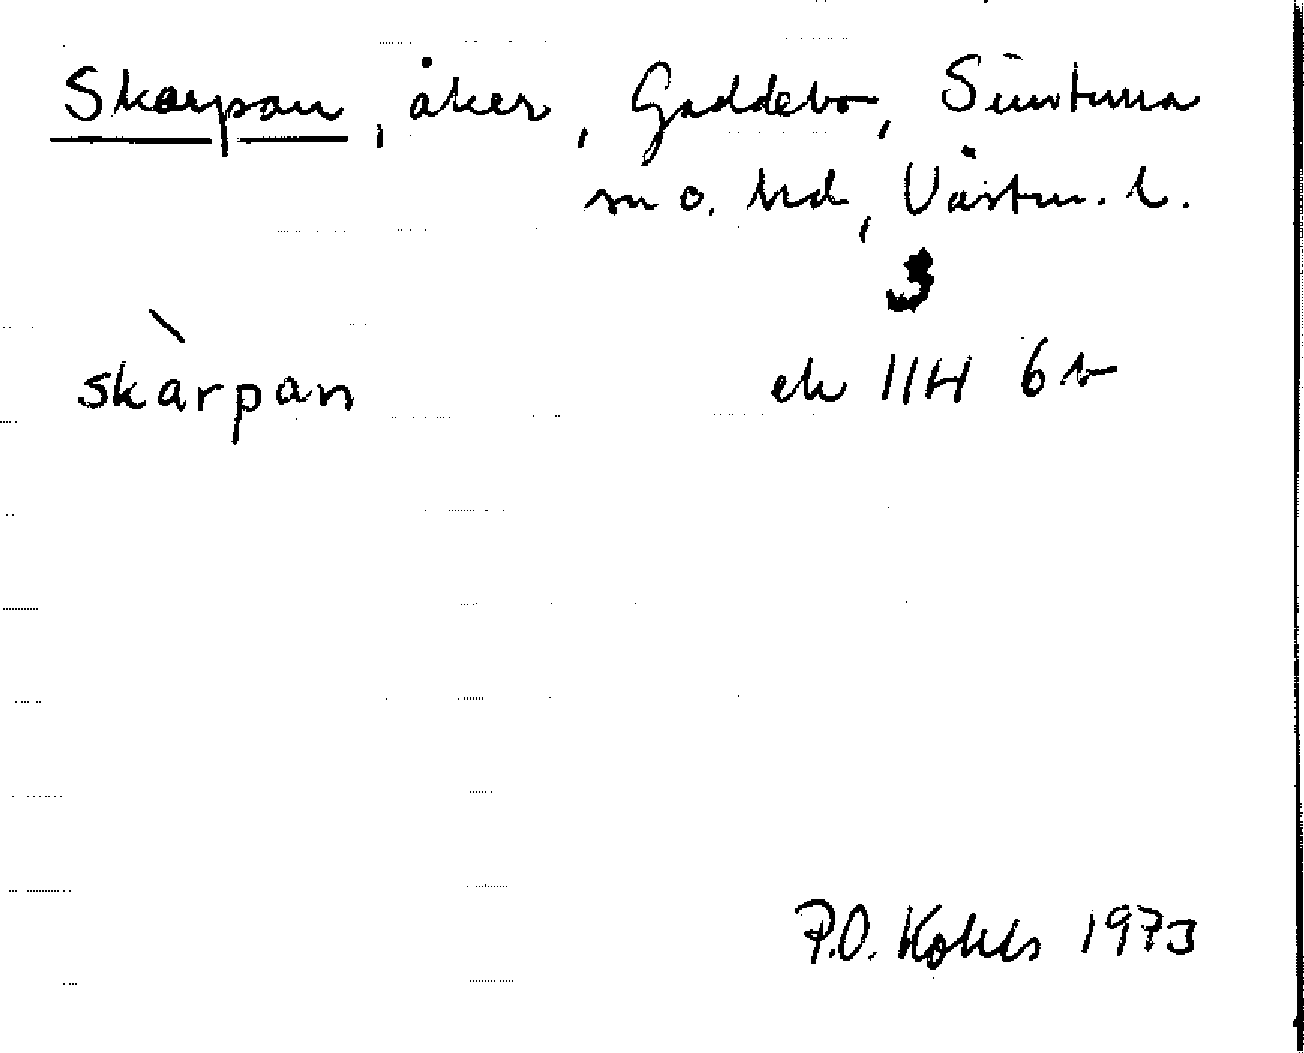 Skarpan, åker, Gaddebo, Simtuna
sn o. hd, Västm. l.
3
skàrpan ek 11H 6b
P.O. Kohls 1973